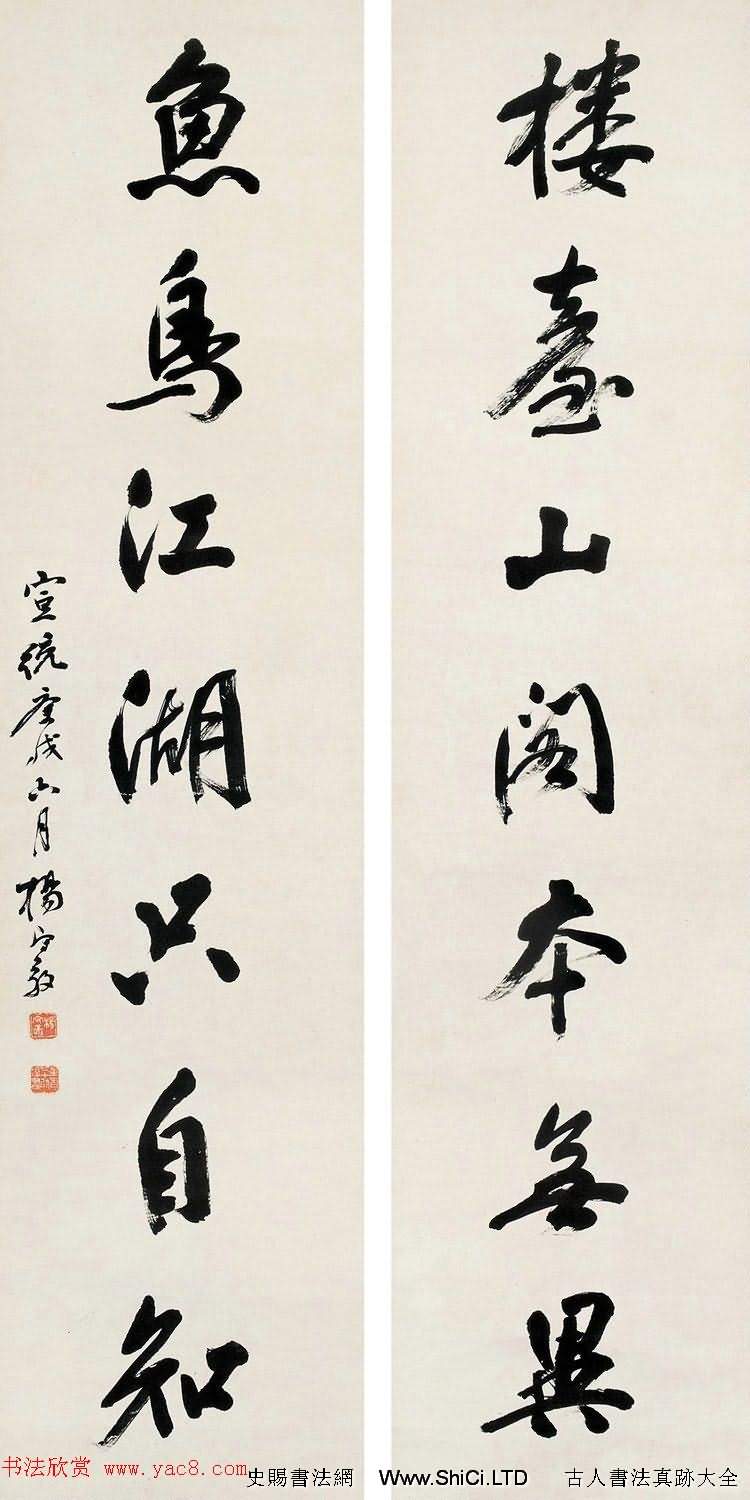 樓臺山閣本無異
魚鳥江湖只自知
宣統庚戌六月楊守敬
书法欣赏 www.yac8.com
史賜書法網 Www.ShiCi.LTD 古人書法真跡大全